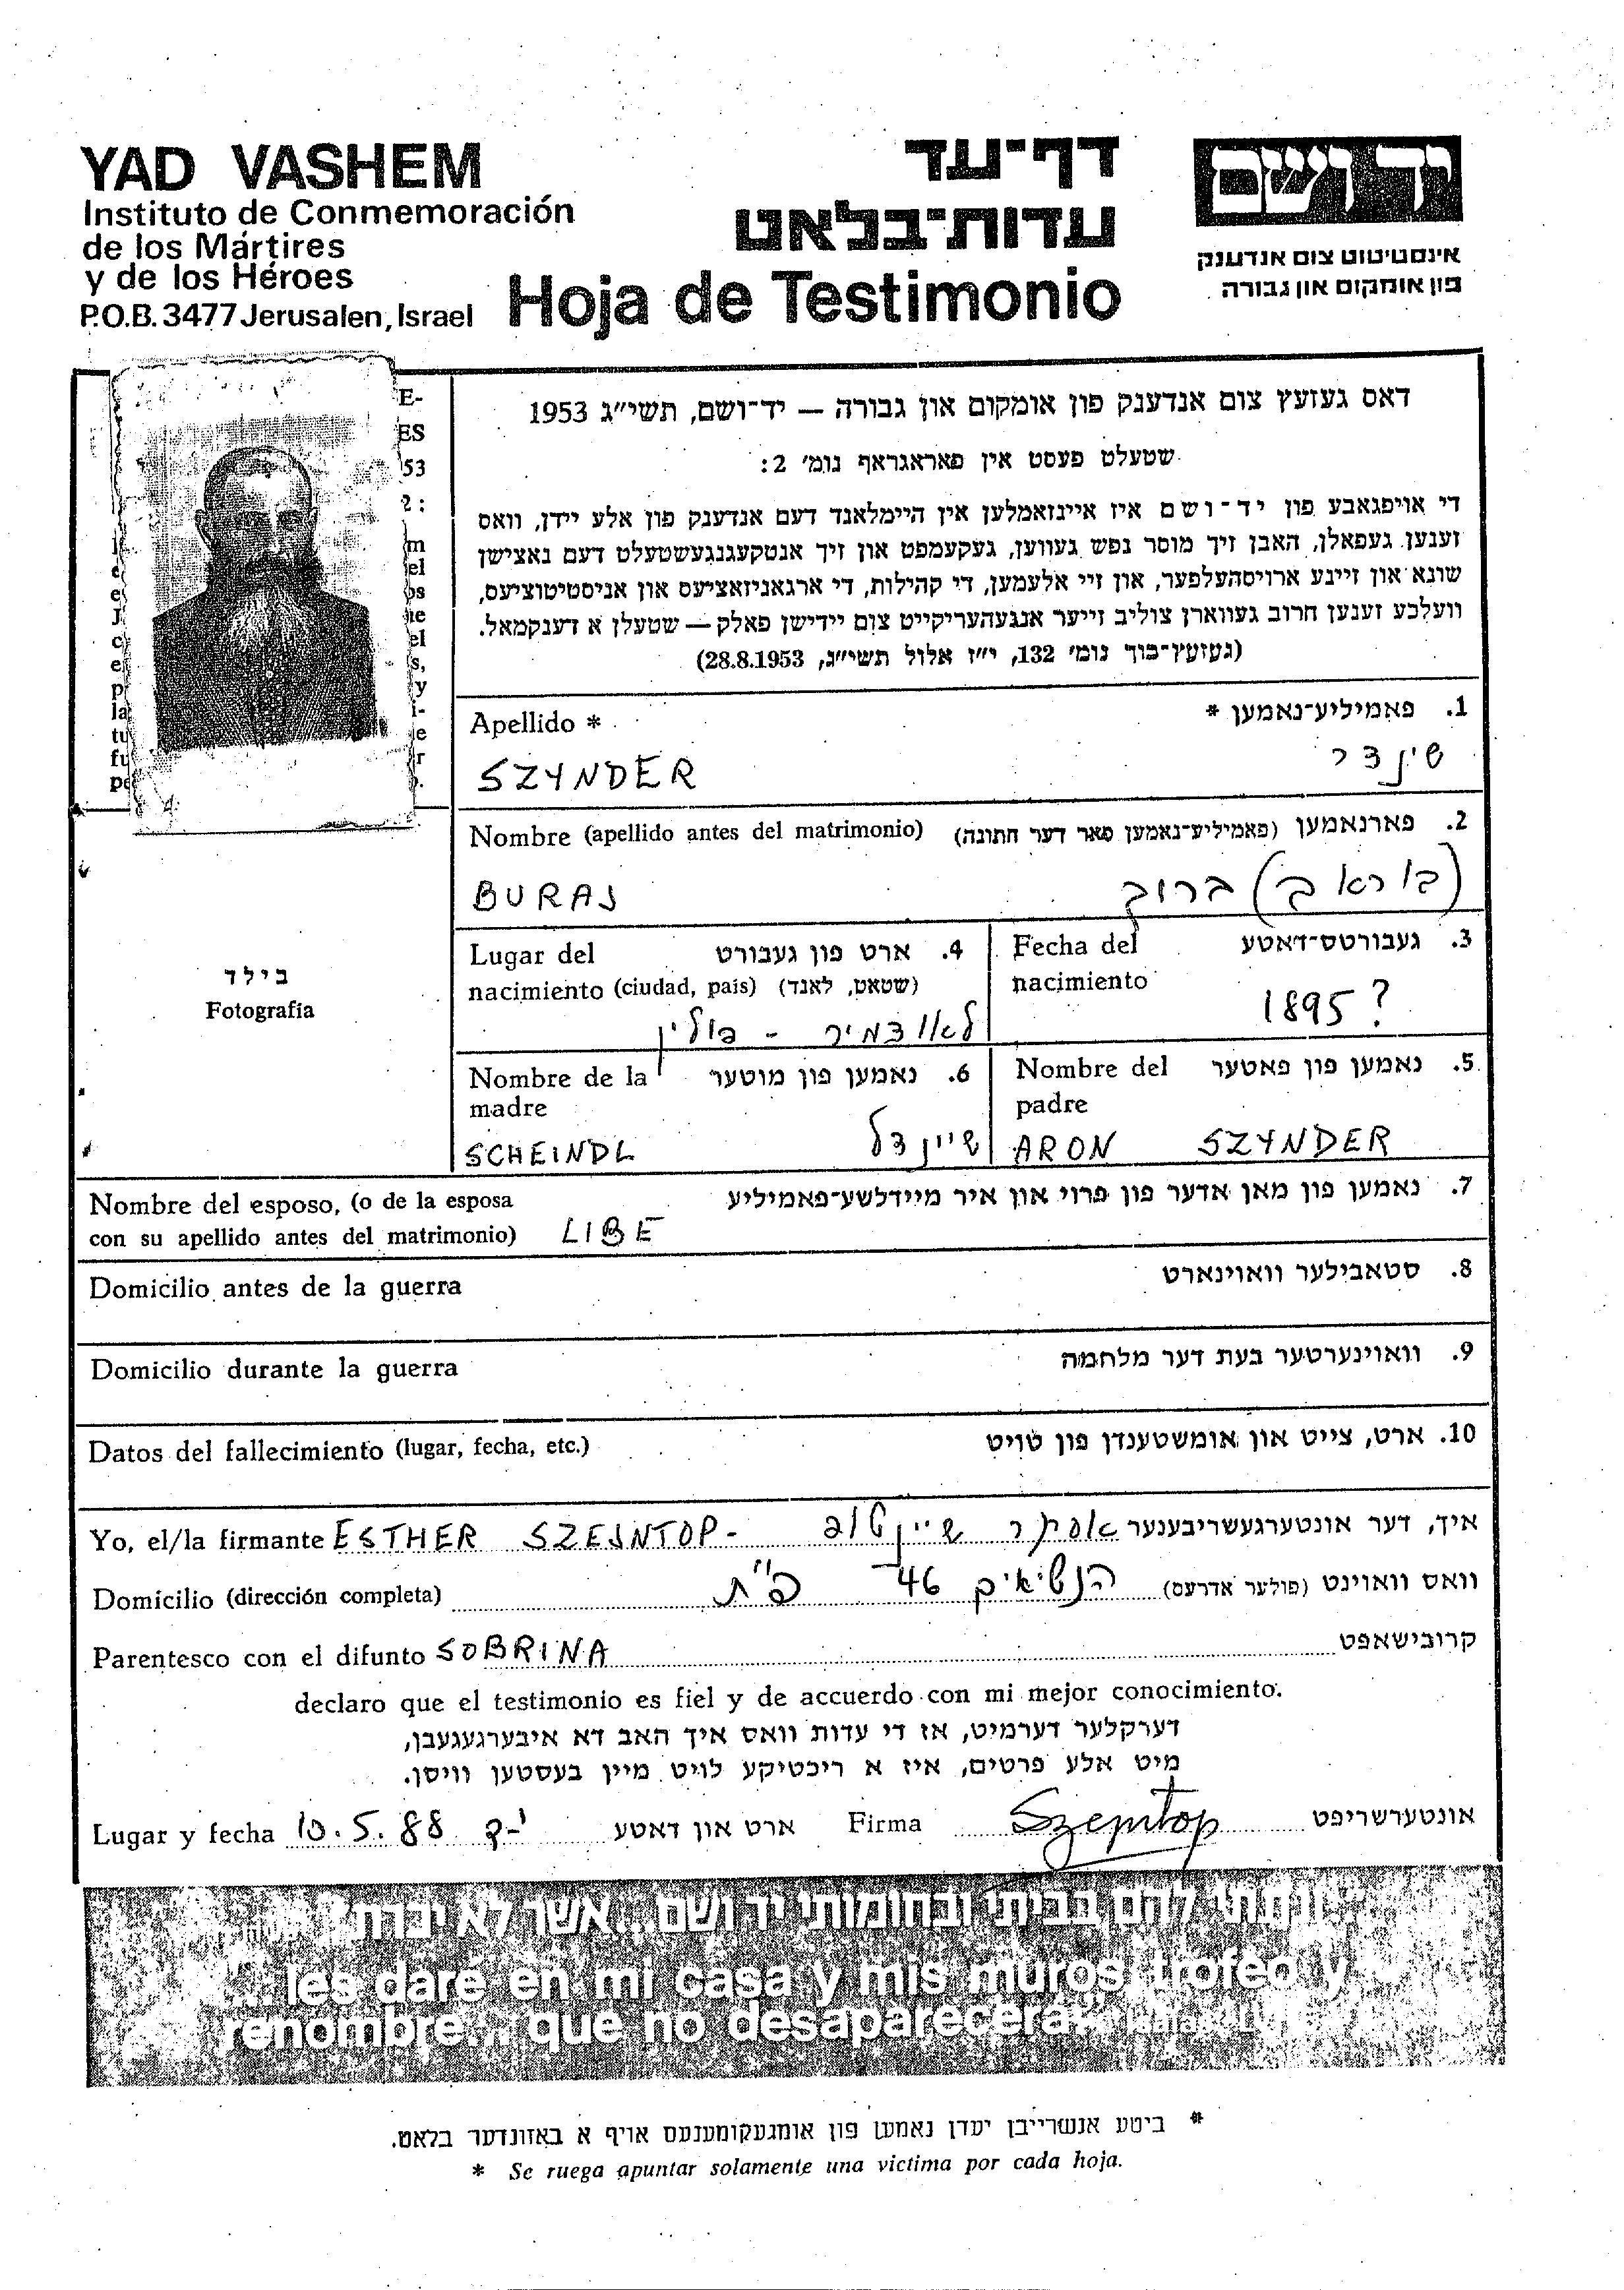 YAD VASHEM
Instituto de Conmemoración
de los Mártires
y de los Héroes
P.O.B. 3477 Jerusalen, Israel
דף-עד
עדות-בלאט
Hoja de Testimonio
יד ושם
אינסטיטוט צום אנדענק
פון אומקום און גבורה
E-
ES
53
2:
דאס געזעץ צום אנדענק פון אומקום און גבורה — יד-ושם, תשי״ג 1953
שטעלט פעסט אין פאראגראף נומ׳ 2:
די אויפגאבע פון יד-ושם איז איינזאמלען אין היימלאנד דעם אנדענק פון אלע יידן, וואס
זענען געפאלן, האבן זיך מוסר נפש געווען, געקעמפט און זיך אנטקעגנגעשטעלט דעם נאצישן
שונא און זיינע ארויסהעלפער, און זיי אלעמען, די קהילות, די ארגאניזאציעס און אניסטיטוציעס,
וועלכע זענען חרוב געווארן צוליב זייער אנגעהעריקייט צום יידישן פאלק — שטעלן א דענקמאל.
(געזעץ-בוך נומ׳ 132, י״ז אלול תשי״ג, 28.8.1953)
Apellido * 1. פאמיליע-נאמען *
SZYNDER שינדר
Nombre (apellido antes del matrimonio) 2. פארנאמען (פאמיליע-נאמען פאר דער חתונה)
BURAJ ברוך
בילד
Fotografía
Lugar del 4. ארט פון געבורט
nacimiento (ciudad, país) (שטאט, לאנד)
פולין
Fecha del 3. געבורטס-דאטע
nacimiento
1895?
Nombre de la 6. נאמען פון מוטער
madre
SCHEINDL שיינדל
Nombre del 5. נאמען פון פאטער
padre
ARON SZYNDER
Nombre del esposo, (o de la esposa 7. נאמען פון מאן אדער פון פרוי און איר מיידלשע-פאמיליע
con su apellido antes del matrimonio) LIBE
Domicilio antes de la guerra 8. סטאבילער וואוינארט
Domicilio durante la guerra 9. וואוינערטער בעת דער מלחמה
Datos del fallecimiento (lugar, fecha, etc.) 10. ארט, צייט און אומשטענדן פון טויט
Yo, el/la firmante ESTHER SZEJNTOP- איך, דער אונטערגעשריבענער אסתר שיינטופ
Domicilio (dirección completa) וואס וואוינט (פולער אדרעס) הנשיאים 46 פ״ת
Parentesco con el difunto SOBRINA קרובישאפט
declaro que el testimonio es fiel y de acuerdo con mi mejor conocimiento.
דערקלער דערמיט, אז די עדות וואס איך האב דא איבערגעגעבן,
מיט אלע פרטים, איז א ריכטיקע לויט מיין בעסטען וויסן.
Lugar y fecha 10.5.88 ארט און דאטע Firma Szejntop אונטערשריפט
ונתתי להם בביתי ובחומותי יד ושם...אשר לא יכרת"
...les daré en mi casa y mis muros trofeo y
renombre... que no desaparecerá"
* ביטע אנשרייבן יעדן נאמען פון אומגעקומענעם אויף א באזונדער בלאט.
* Se ruega apuntar solamente una victima por cada hoja.